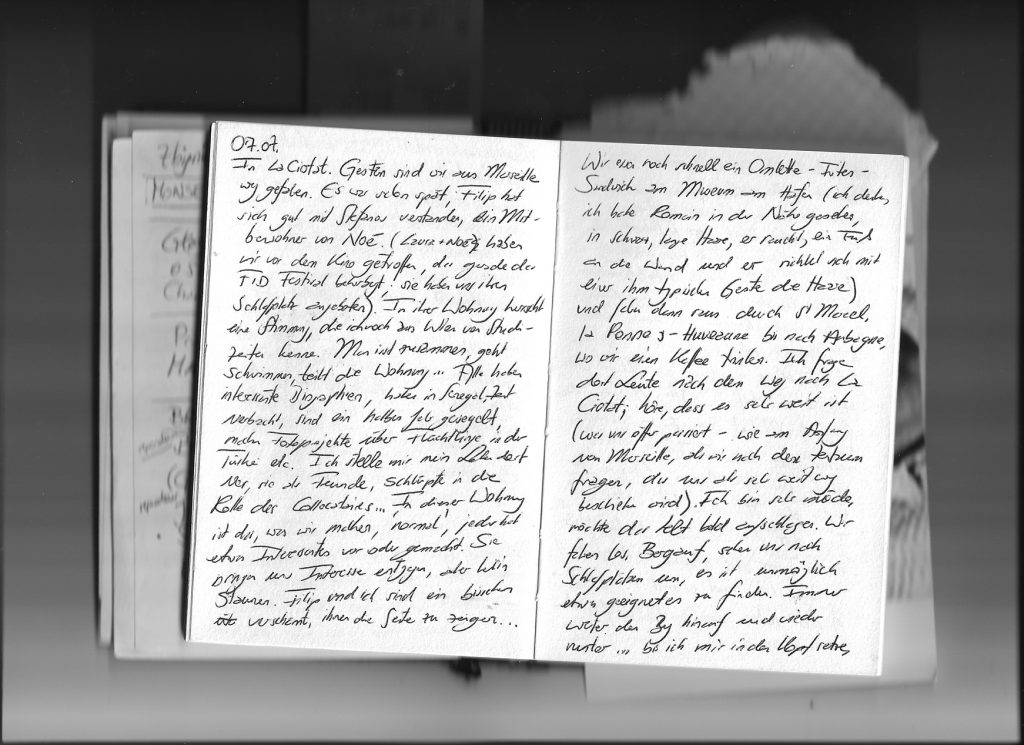 07.07.
In La Ciotat. Gestern sind wir aus Marseille
weg gefahren. Es war schon spät, Filip hat
sich gut mit Stefano verstanden, ein Mit-
bewohner von Noé. (Laura + Noé haben
wir vor dem Kino getroffen, das gerade das
FID Festival beherbergt; sie haben uns ihren
Schlafplatz angeboten). In ihrer Wohnung herrscht
eine Stimmung, die ich noch aus Wien von Studi-
zeiten kenne. Man isst zusammen, geht
schwimmen, teilt die Wohnung... Alle haben
interessante Biographien, haben in Senegal Zeit
verbracht, sind ein halbes Jahr gesegelt,
machen Fotoprojekte über Flüchtlinge in der
Türkei etc. Ich stelle mir mein Leben dort
vor, sie als Freunde, schlüpfte in die
Rolle der Collocataires... In dieser Wohnung
ist das, was wir machen, 'normal', jeder hat
etwas Interessantes vor oder gemacht. Sie
bringen uns Interesse entgegen, aber kein
Staunen. Filip und ich sind ein bisschen
verschämt, ihnen die Seite zu zeigen...
Wir essen noch schnell ein Omlette-Friten-
Sandwich am Museum am Hafen (ich denke,
ich habe Romain in der Nähe gesehen,
in schwarz, lange Haare, er raucht, ein Fuß
an die Wand und er richtet sich mit
einer ihm typischen Geste die Haare)
und fahren dann raus durch St Marcel,
La Penne-s-Huveaune bis nach Aubagne,
wo wir einen Kaffee trinken. Ich frage
dort Leute nach dem Weg nach La
Ciotat; höre, dass es sehr weit ist
(was uns öfter passiert - wie am Anfang
von Marseille, als wir nach dem Zentrum
fragen, das uns als sehr weit weg
beschrieben wird). Ich bin sehr müde,
möchte das Zelt bald aufschlagen. Wir
fahren los, Bergauf, sehen uns nach
Schlafplätzen um, es ist unmöglich
etwas geeignetes zu finden. Immer
weiter den Berg hinauf und wieder
runter... bis ich mir in den Kopf setze,